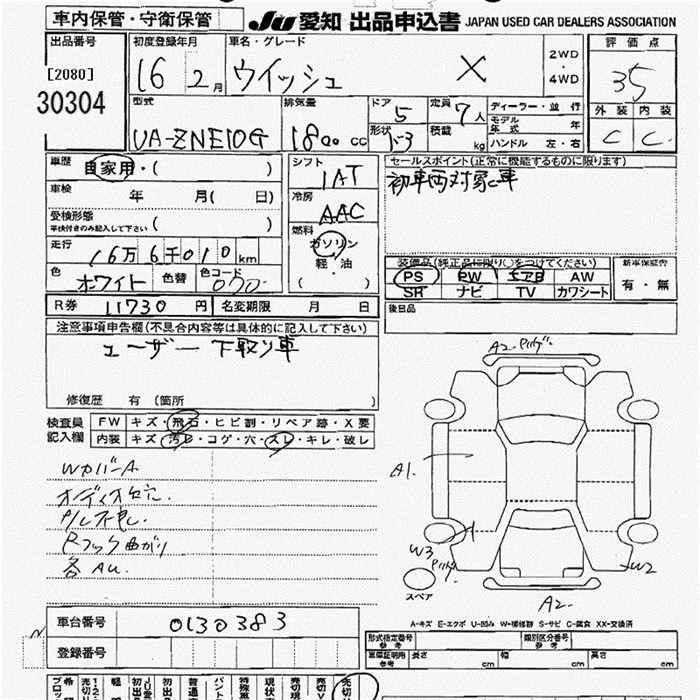 車内保管・守衛保管
JU 愛知 出品申込書 JAPAN USED CAR DEALERS ASSOCIATION
出品番号
[2080]
30304
初度登録年月
16 2月
車名・グレード
ウイッシュ X
2WD
・
4WD
評価点
35
外装 内装
C C
型式
UA-ZNE10G
排気量
1800 cc
ドア 5
定員 7人
形状
積載 kg
ディーラー・並行
モデル年式 年
ハンドル 左・右
車歴
自家用・( )
車検 年 月( 日)
受検形態
車検付きのみ記入して下さい ( )
走行 16万6千010km
色 ホワイト 色替 色コード 070
R券 11730円 名変期限 月 日
シフト
1AT
冷房
AAC
燃料
ガソリン
軽・油
( )
セールスポイント(正常に機能するものに限ります)
初車両対象車
装備品(純正品に限り○をつけてください)
PS PW エアB AW
SR ナビ TV カワシート
新車保証書
有・無
後日品
注意事項申告欄(不具合内容等は具体的に記入して下さい)
ユーザー下取り車
修復歴 有(箇所 )
検査員記入欄
FW キズ・飛石・ヒビ割・リペア跡・X要
内装 キズ・汚レ・コゲ・穴・スレ・キレ・破レ
WカバーA
オーディオ欠穴.
Rフック曲がり
各AU.
A2
A1
W3
W2
A2
スペア
A-キズ E-エクボ U-凹み W-補修跡 S-サビ C-腐食 XX-交換済
車台番号 0130383
登録番号
形式指定番号 参考
類別区分番号 参考
車庫証明用 参考 長さ cm 幅 cm 高さ cm